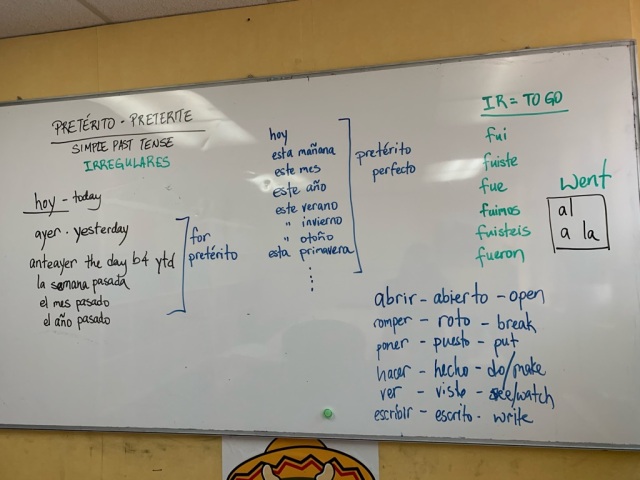 PRETÉRITO - PRETERITE
SIMPLE PAST TENSE
IRREGULARES
hoy - today
ayer - yesterday
anteayer the day b4 ytd
la semana pasada
el mes pasado
el año pasado
for
pretérito
hoy
esta mañana
este mes
este año
este verano
" invierno
" otoño
esta primavera
pretérito
perfecto
IR = TO GO
fui
fuiste
fue
fuimos
fuisteis
fueron
went
al
a la
abrir - abierto - open
romper - roto - break
poner - puesto - put
hacer - hecho - do/make
ver - visto - see/watch
escribir - escrito - write